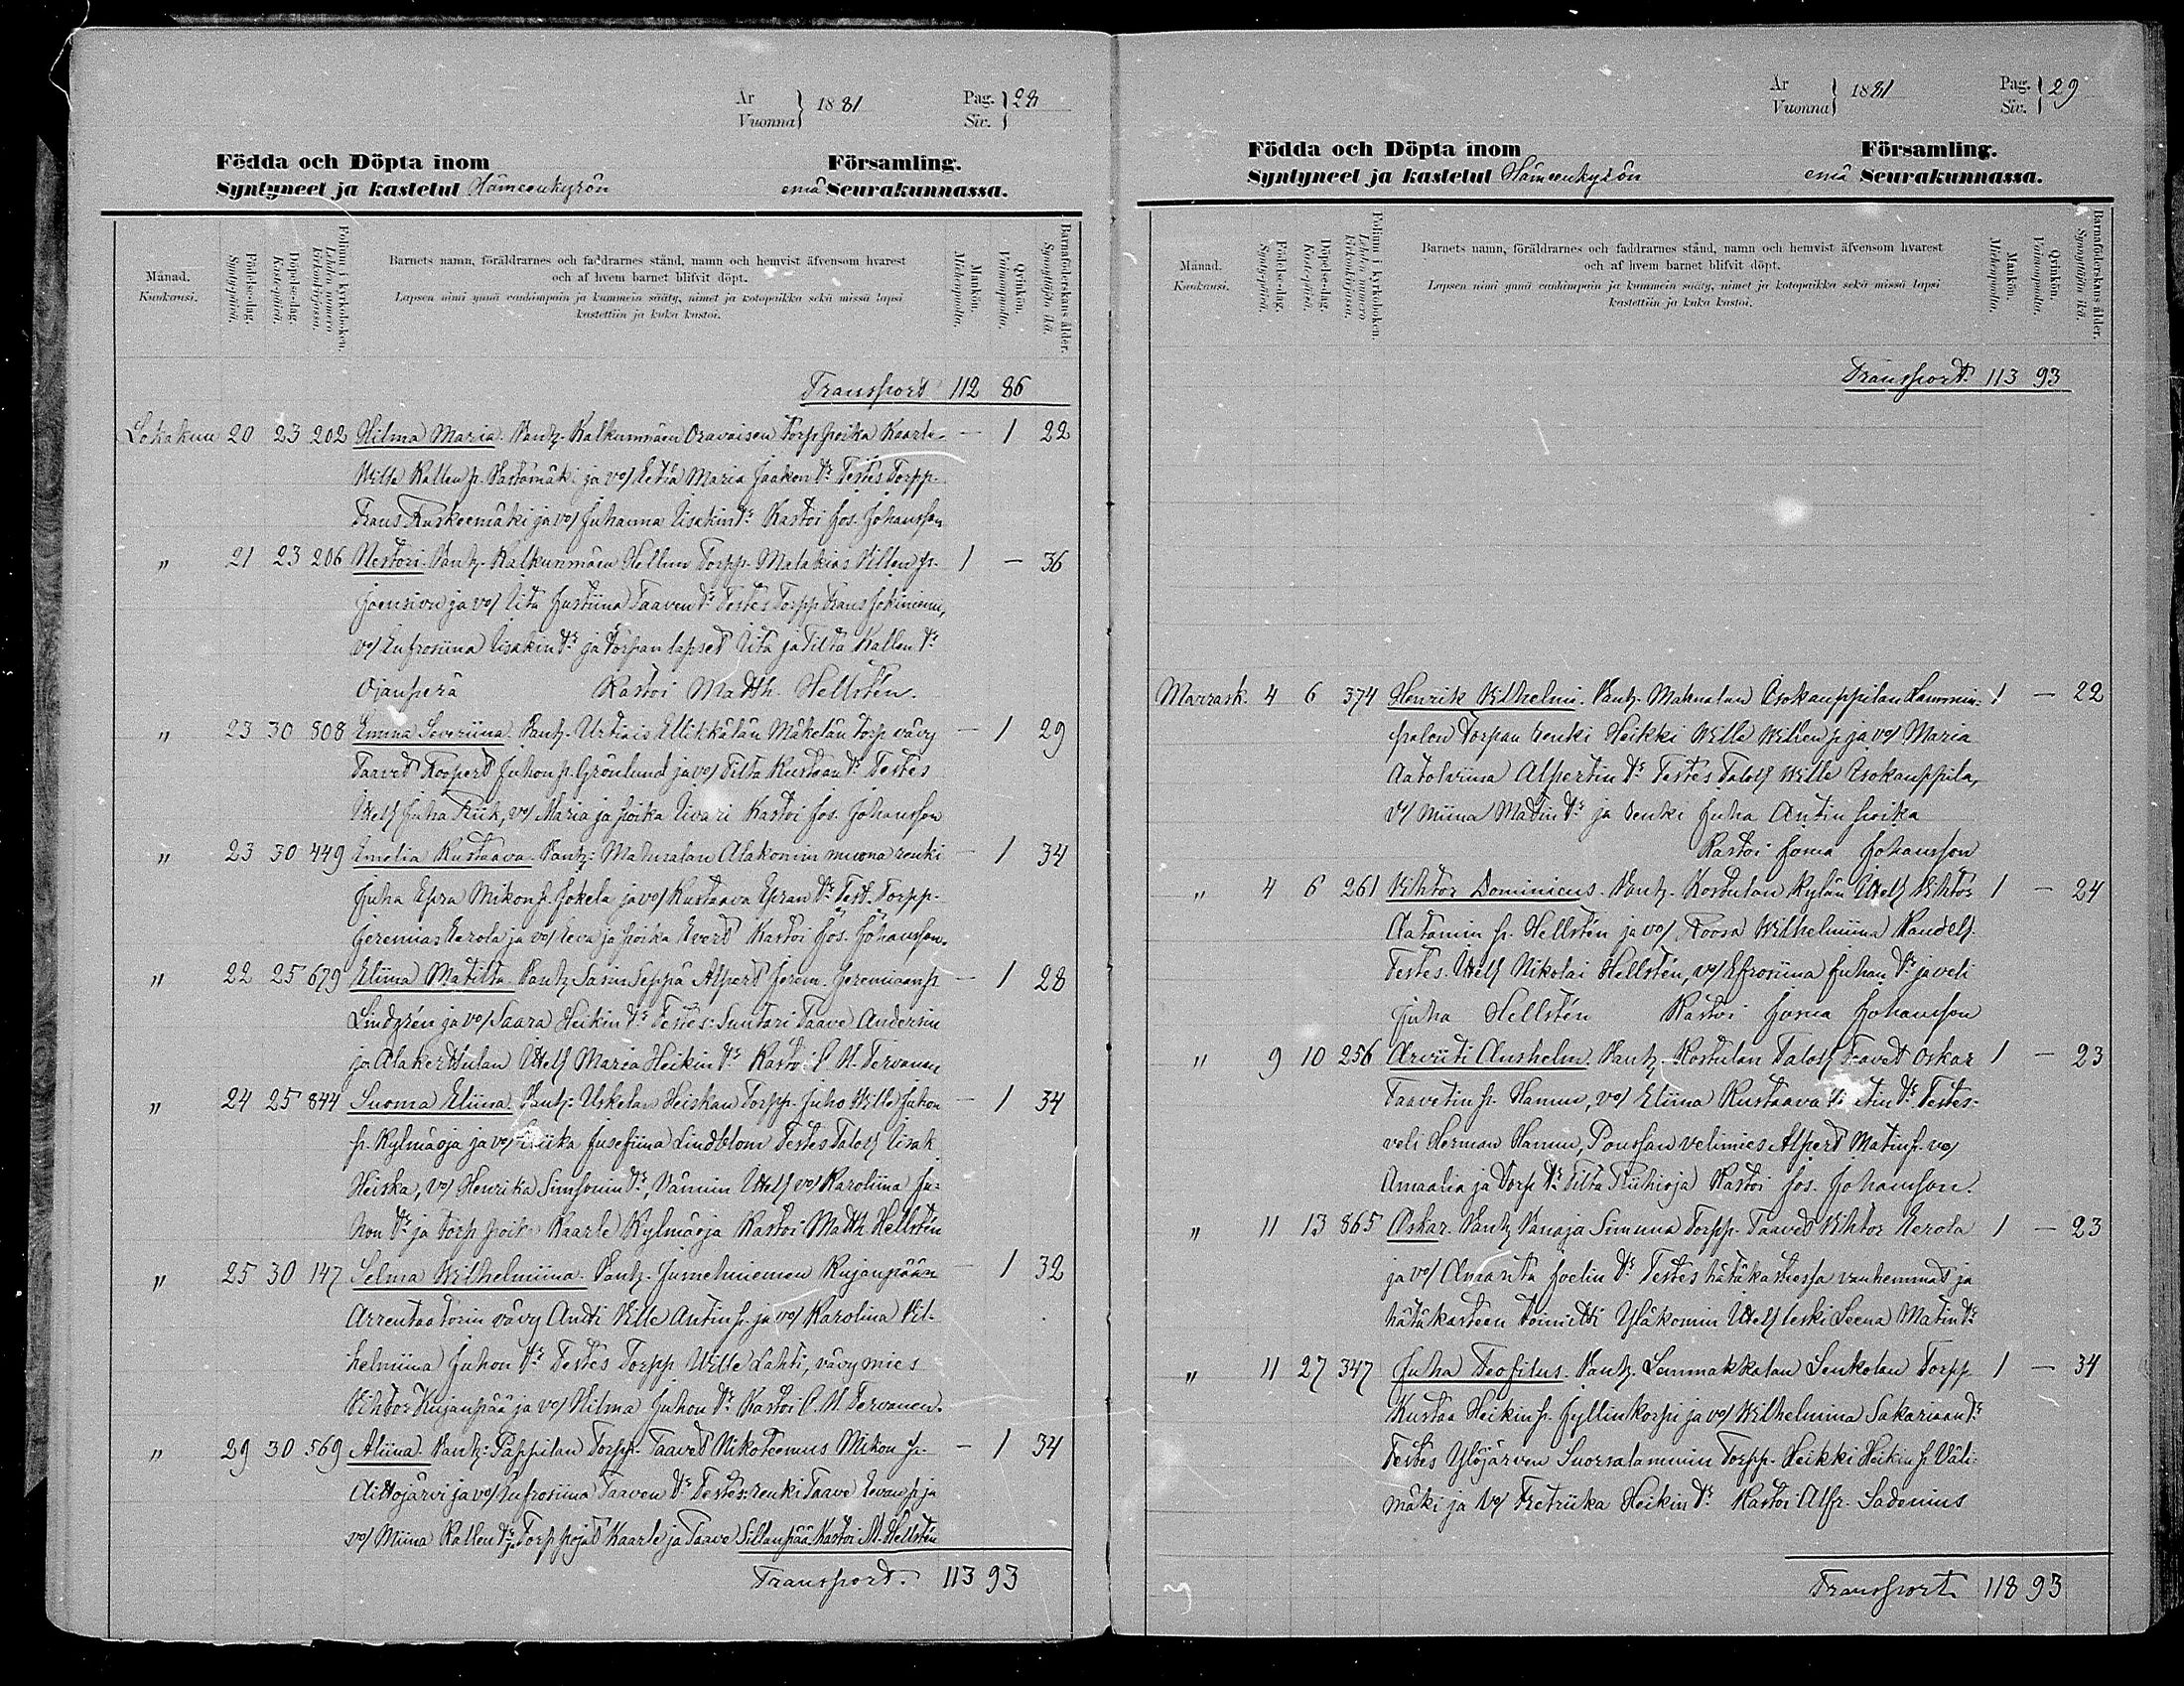 År
Vuonna } 1881
Pag.
Siv. } 28
Födda och Döpta inom Församling.
Syntyneet ja kastetut Hämeenkyrön emä Seurakunnassa.
Månad.
Kuukausi.
Födelse-dag.
Syntypäivä.
Döpelse-dag.
Kastepäivä.
Folium i kyrkoboken.
Lehden numero Kirkonkirjassa.
Barnets namn, föräldrarnes och faddrarnes stånd, namn och hemvist äfvensom hvarest
och af hvem barnet blifvit döpt.
Lapsen nimi ynnä vanhimpain ja kummein sääty, nimet ja kotopaikka sekä missä lapsi
kastettiin ja kuka kastoi.
Mankön.
Miehenpuolia.
Qvinkön.
Vaimonpuolia.
Barnaföderskans ålder.
Synnyttäjän ikä.
Transport 112 86
Lokakuu 20 23 202 Hilma Maria. Vanh. Kalkunmäen Oravaisen Torp. poika Kaarle — 1 22
Wille Kallen p. Hastamäki ja vo/ Eetla Maria Jaakon dr Testes Torpp.
Frans Ruskeemäki ja vo/ Juhanna Iisakin dr Kastoi Jos. Johansson
" 21 23 206 Nestori. Vanh. Kalkunmäen Hellun Torpp. Malakias Villen p. 1 — 36
Joensivu ja vo/ Iita Justiina Taaven dr Testes Torpp Frans Jokiniemi,
vo/ Eufrosiina Iisakin dr ja Torpan lapset Iita ja Tilta Kallen dr
Ojanperä Kastoi Matth. Hellstén.
" 23 30 508 Emma Severiina. Vanh. Urtiais Ellikkälän Mäkelän Torp vävy — 1 29
Taavet Roopert Juhon p. Grönlund ja vo/ Tilta Kustaan dr Testes
Itell Juha Fiik, vo/ Maria ja poika Iivari Kastoi Jos. Johansson
" 23 30 449 Emelia Kustaava. Vanh: Mahnalan Alakomin muona renki — 1 34
Juha Esra Mikon p. Jokela ja vo/ Kustaava Esran dr Test. Torpp.
Jeremias Eerola ja vo/ Eeva ja poika Evert Kastoi Jos. Johansson.
" 22 25 679 Eliina Matilta. Vanh Sasin Seppä Alpert Jerem. Jeremiaan p — 1 28
Lindgrén ja vo/ Saara Heikin dr Testes: Suutari Taave Andersin
ja Alakerttulan Itell Maria Heikin dr Kastoi C. N. Tervanen
" 24 25 844 Suoma Eliina. Vanh: Uskelan Heiskan Torpp. Juho Wille Juhon — 1 34
p. Kylmäoja ja vo/ Friika Jusefiina Lindblom Testes Talolf Iisak
Heiska, vo/ Henrika Simsonin dr, Vännin Itell vo/ Karoliina Ju-
hon dr ja Torp poik. Kaarle Kylmäoja Kastoi Matth. Hellstén
" 25 30 147 Selma Wilhelmiina. Vanh. Jumelniemen Kujanpään — 1 32
Arrentaatorin vävy Antti Ville Antin p. ja vo/ Karolina Vil-
helmiina Juhon dr Testes Torpp. Wille Lahti, vävymies
Vihtor Kujanpää ja vo/ Hilma Juhon dr Kastoi C. N. Tervanen.
" 29 30 569 Aliina. Vanh: Pappilan Torpp. Taavet Nikoteemus Mikon p. — 1 34
Aittojärvi ja vo/ Eufrosiina Taaven dr Testes: renki Taave Eevan p ja
vo/ Miina Kallen dr, ja Torp pojat Kaarle ja Taave Sillanpää. Kastoi M. Hellstén
Transport. 113 93
År
Vuonna } 1881
Pag.
Siv. } 29
Födda och Döpta inom Församling.
Syntyneet ja kastetut Hämeenkyrön emä Seurakunnassa.
Månad.
Kuukausi.
Födelse-dag.
Syntypäivä.
Döpelse-dag.
Kastepäivä.
Folium i kyrkoboken.
Lehden numero Kirkonkirjassa.
Barnets namn, föräldrarnes och faddrarnes stånd, namn och hemvist äfvensom hvarest
och af hvem barnet blifvit döpt.
Lapsen nimi ynnä vanhimpain ja kummein sääty, nimet ja kotopaikka sekä missä lapsi
kastettiin ja kuka kastoi.
Mankön.
Miehenpuolia.
Qvinkön.
Vaimonpuolia.
Barnaföderskans ålder.
Synnyttäjän ikä.
Transport 113 93
Marrask. 4 6 374 Henrik Vilhelmi. Vanh. Mahnalan Isokauppilan Hammin- 1 — 22
palon Torpan renki Heikki Wille Willen p ja vo/ Maria
Aatolviina Alpertin dr Testes Talolf Wille Isokauppila,
vo/ Miina Matin dr ja renki Juha Antin poika
Kastoi Joma Johansson
" 4 6 261 Vihtor Dominicus. Vanh. Kostulan Kylän Itell Vihtor 1 — 24
Aatamin p. Hellstén ja vo/ Roosa Wilhelmiina Vandell.
Testes. Itell Nikolai Hellstén, vo/ Efrosiina Juhan dr ja veli
Juha Hellstén Kastoi Joma Johansson
" 9 10 256 Arviiti Anshelm. Vanh. Kostulan Talolf Taavet Oskar 1 — 23
Taavetin p. Hannu, vo/ Eliina Kustaava dr Testes:
veli Herman Hannu, Poussan velimies Alpert Matin p. vo/
Amaalia ja Torp dr Tilta Riihioja Kastoi Jos. Johansson.
" 11 13 865 Oskar. Vanh Vanaja Simuna Torpp. Taavet Vihtor Eerola 1 — 23
ja vo/ Amanta Joelin dr Testes hätäkasteessa vanhemmat ja
hätäkasteen toimitti Yläkomin Itell leski Leena Matin dr
" 11 27 347 Juha Teofilus. Vanh. Lammakkalan Lenkolan Torpp 1 — 34
Kustaa Heikin p. Jyllinkorpi ja vo/ Wilhelmina Sakariaan dr
Testes Ylöjärven Suorsalammin Torpp. Heikki Heikin p Väli-
mäki ja vo/ Fretriika Heikin dr Kastoi Alfr. Sadenius
Transport 118 93